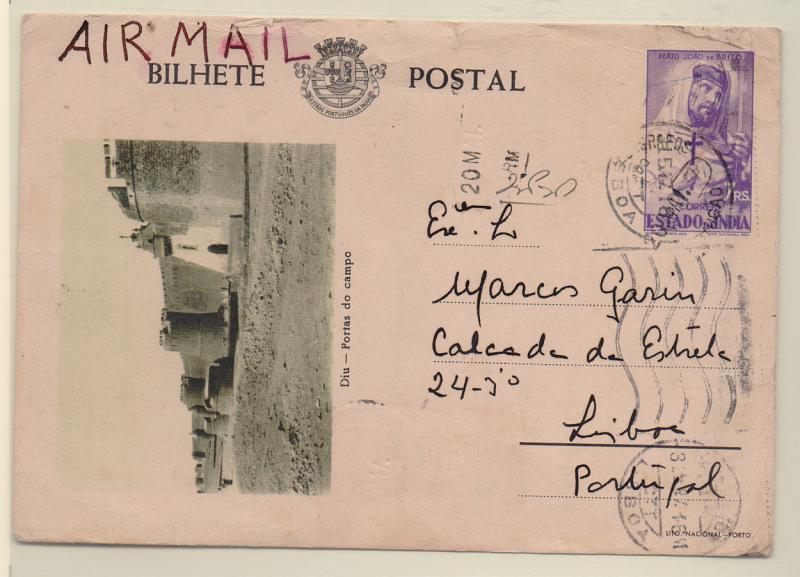 AIR MAIL
BILHETE POSTAL
ESTADO PORTUGUÊS DA INDIA
BEATO JOÃO DE BRITO
CORREIO
ESTADO DA INDIA
20 M
Diu — Portas do campo
Marcos Garin
Calcada da Estrela
24-3º
Lisboa
Portugal
LITO. NACIONAL - PORTO